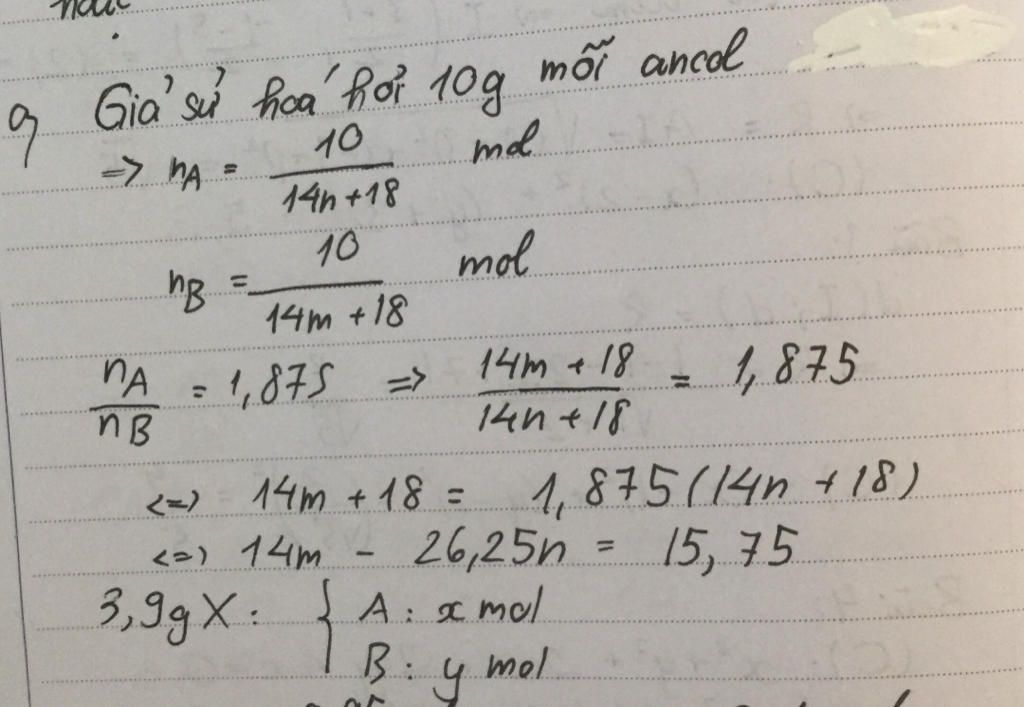 a, Giả sử hoá hơi 10g mỗi ancol
=> nA = 10/(14n+18) mol
nB = 10/(14m+18) mol
nA/nB = 1,875 => (14m+18)/(14n+18) = 1,875
<=> 14m + 18 = 1,875(14n + 18)
<=> 14m - 26,25n = 15,75
3,9g X: { A: x mol
B: y mol